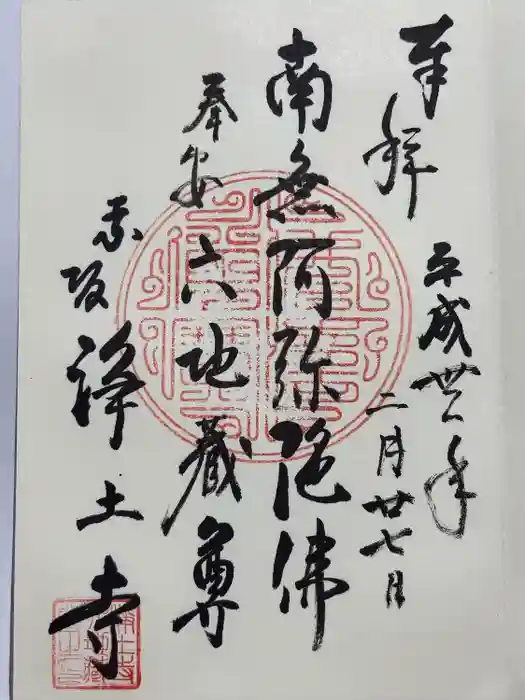 奉拝
平成丗一年
二月廿七日
南無阿弥陀佛
奉安六地蔵尊
赤坂
浄土寺